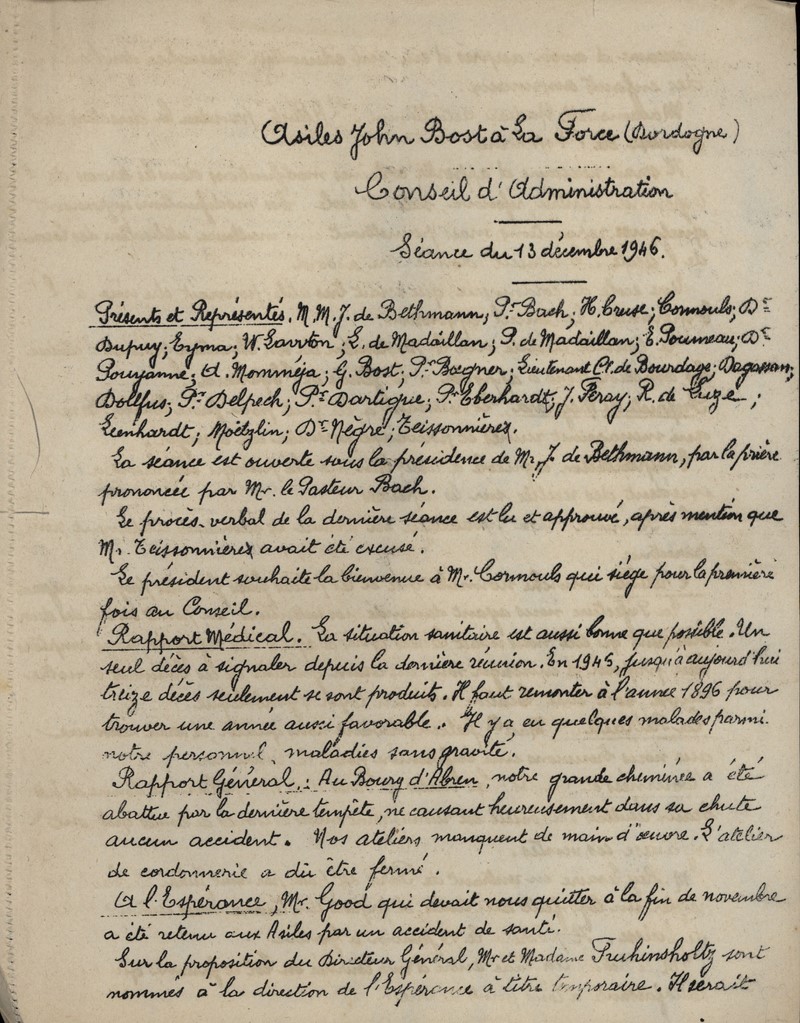 Asiles John Bost à La Force (Dordogne)
Conseil d'Administration
Séance du 13 décembre 1946.
Présents et Représentés. M.M. J. de Bethmann; Pr Bach; H. Cruse; Cormouls; Dr
Dupuy; Eyma; W. Lawton; L. de Madaillan; P. de Madaillan; E. Poumeau; Dr
Pouyanne; A. Momméja; G. Bost; Pr Boegner; Lieutenant Ct. de Bourdage; Dagassan;
Dollfus; Pr Delpech; Pr Dartigue; Pr Eberhardt; J. Feray; R. de Luze;
Leenhardt; Moëtzlin; Dr Nègre; Teissonnière.
La séance est ouverte sous la présidence de Mr. J. de Bethmann, par la prière
prononcée par Mr. le Pasteur Bach.
Le procès-verbal de la dernière séance est lu et approuvé, après mention que
Mr. Teissonnière avait été excusé.
Le président souhaite la bienvenue à Mr. Cormouls qui siège pour la première
fois au Conseil.
Rapport Médical. La situation sanitaire est aussi bonne que possible. Un
seul décès à signaler depuis la dernière réunion. En 1946, jusqu'à aujourd'hui
treize décès seulement se sont produits. Il faut remonter à l'année 1896 pour
trouver une année aussi favorable. Il y a eu quelques malades parmi
notre personnel, maladies sans gravité.
Rapport Général. : Au Bourg d'Abren, notre grande cheminée a été
abattue par la dernière tempête, ne causant heureusement dans sa chute
aucun accident. Nos ateliers manquent de main d'œuvre. L'atelier
de cordonnerie a dû être fermé.
A l'Espérance, Mr. Good qui devait nous quitter à la fin de novembre
a été retenu aux Asiles par un accident de santé.
Sur la proposition du Directeur Général, Mr et Madame Fruhinsholtz sont
nommés à la direction de l'Espérance à titre temporaire. Il serait